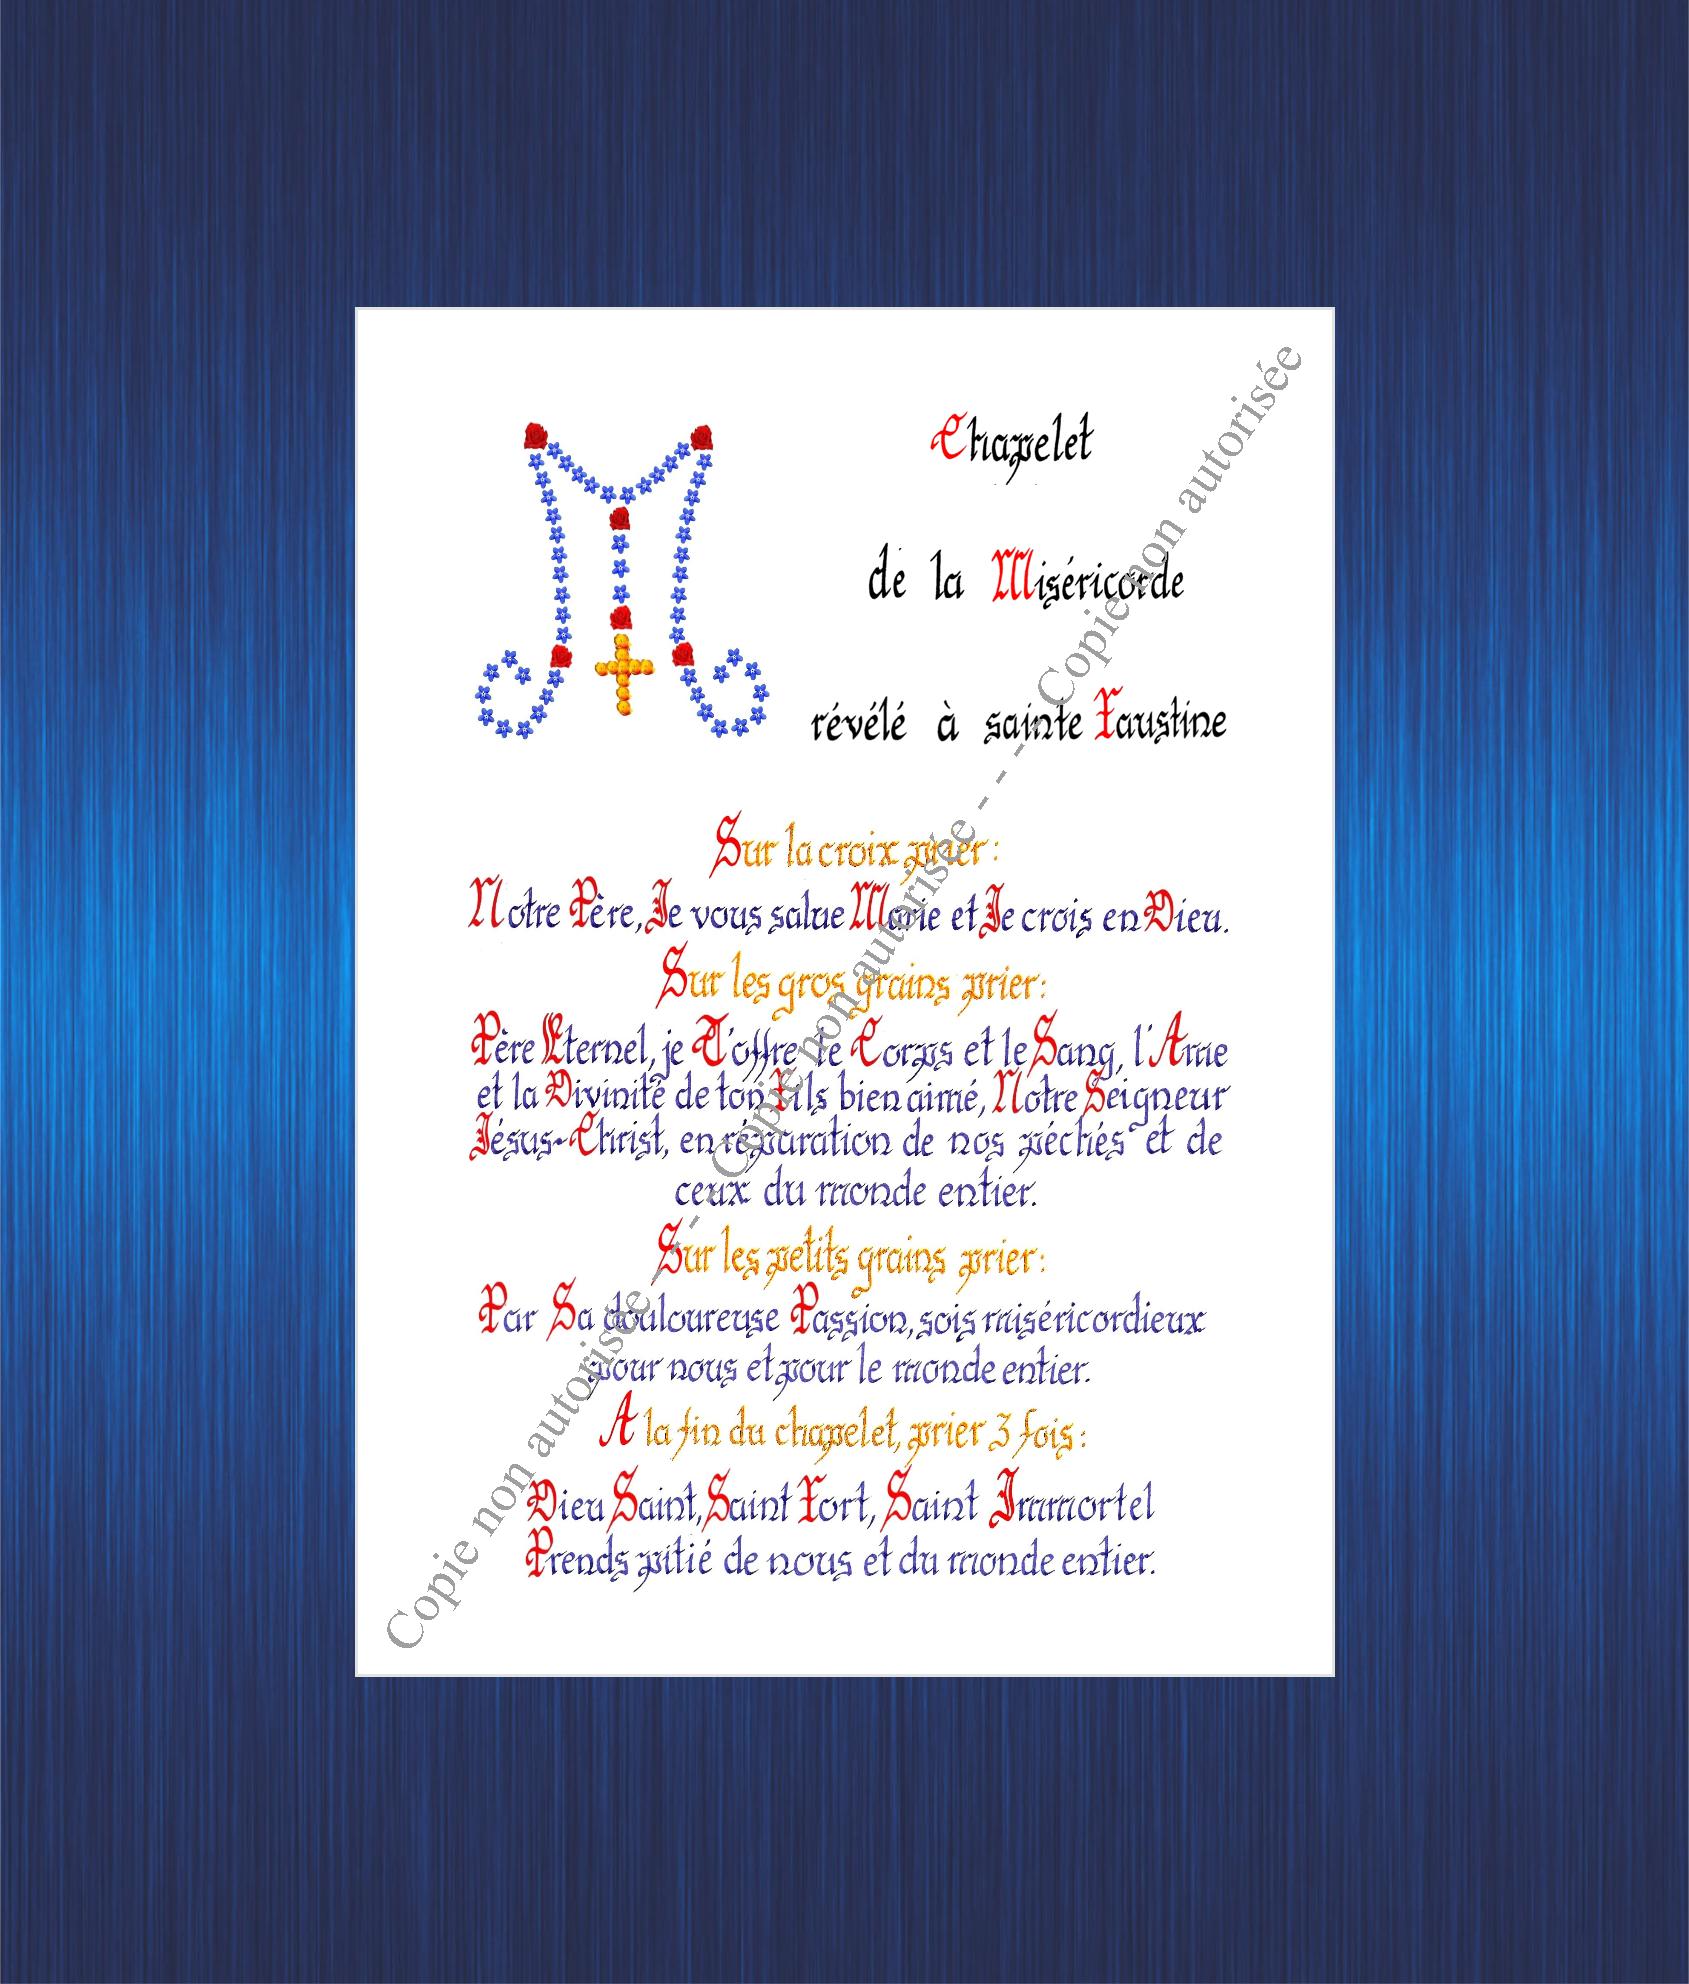 Chapelet
de la Miséricorde
révélé à sainte Faustine
Sur la croix prier :
Notre Père, Je vous salue Marie et Je crois en Dieu.
Sur les gros grains prier :
Père Eternel, je T'offre le Corps et le Sang, l'Ame
et la Divinité de ton Fils bien aimé, Notre Seigneur
Jésus-Christ, en réparation de nos péchés et de
ceux du monde entier.
Sur les petits grains prier :
Par Sa douloureuse Passion, sois miséricordieux
pour nous et pour le monde entier.
A la fin du chapelet, prier 3 fois :
Dieu Saint, Saint Fort, Saint Immortel
Prends pitié de nous et du monde entier.
Copie non autorisée - - - Copie non autorisée - - - Copie non autorisée